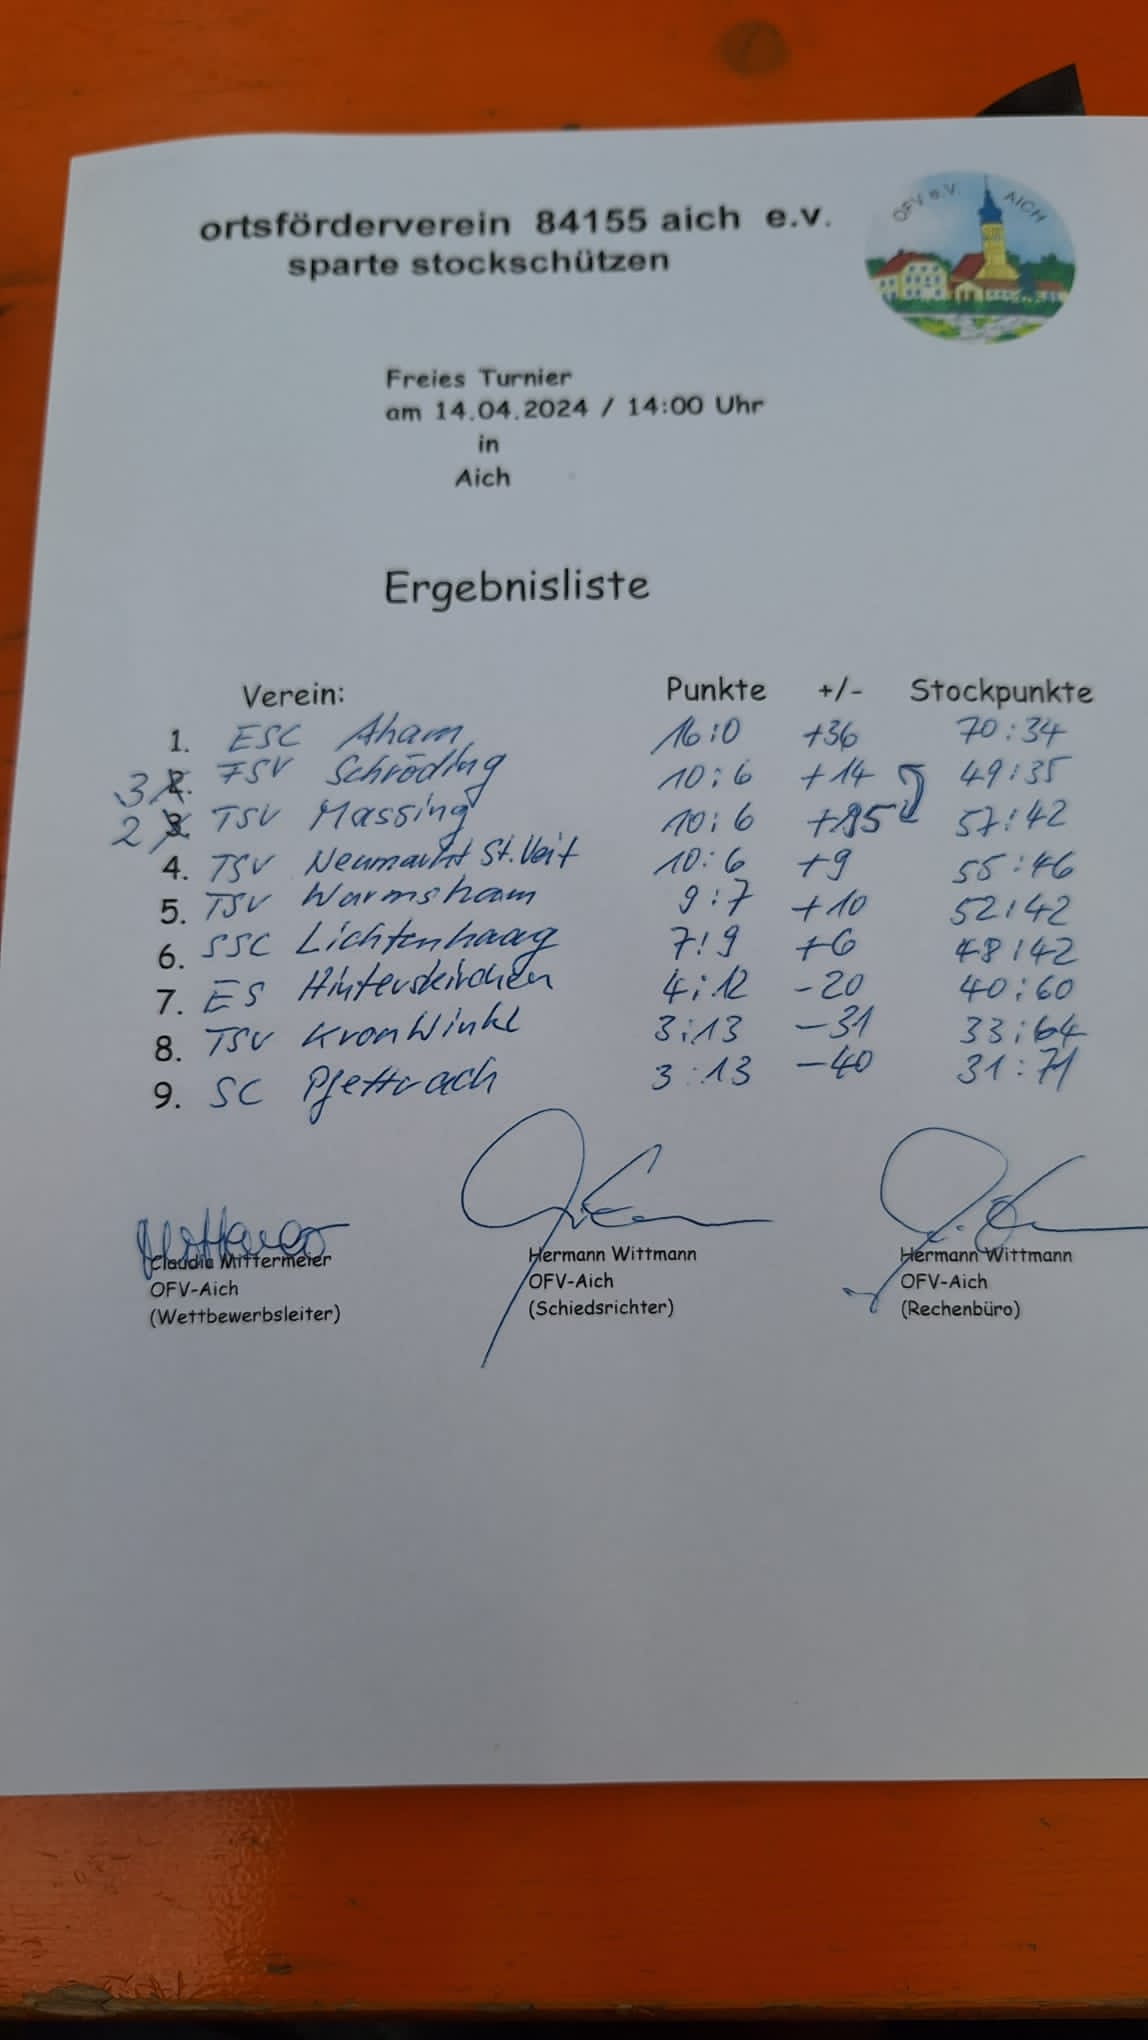 OFV e.V. AICH
ortsförderverein 84155 aich e.v.
sparte stockschützen
Freies Turnier
am 14.04.2024 / 14:00 Uhr
in
Aich
Ergebnisliste
Verein: Punkte +/- Stockpunkte
1. ESC Aham 16:0 +36 70:34
3 2. FSV Schrödlng 10:6 +14 49:35
2 3. TSV Massing 10:6 +15 57:42
4. TSV Neumarkt St. Veit 10:6 +9 55:46
5. TSV Warmsham 9:7 +10 52:42
6. SSC Lichtenhaag 7:9 +6 48:42
7. ES Hinterskirchen 4:12 -20 40:60
8. TSV Kronwinkl 3:13 -31 33:64
9. SC Pfettrach 3:13 -40 31:71
Claudia Mittermeier Hermann Wittmann Hermann Wittmann
OFV-Aich OFV-Aich OFV-Aich
(Wettbewerbsleiter) (Schiedsrichter) (Rechenbüro)